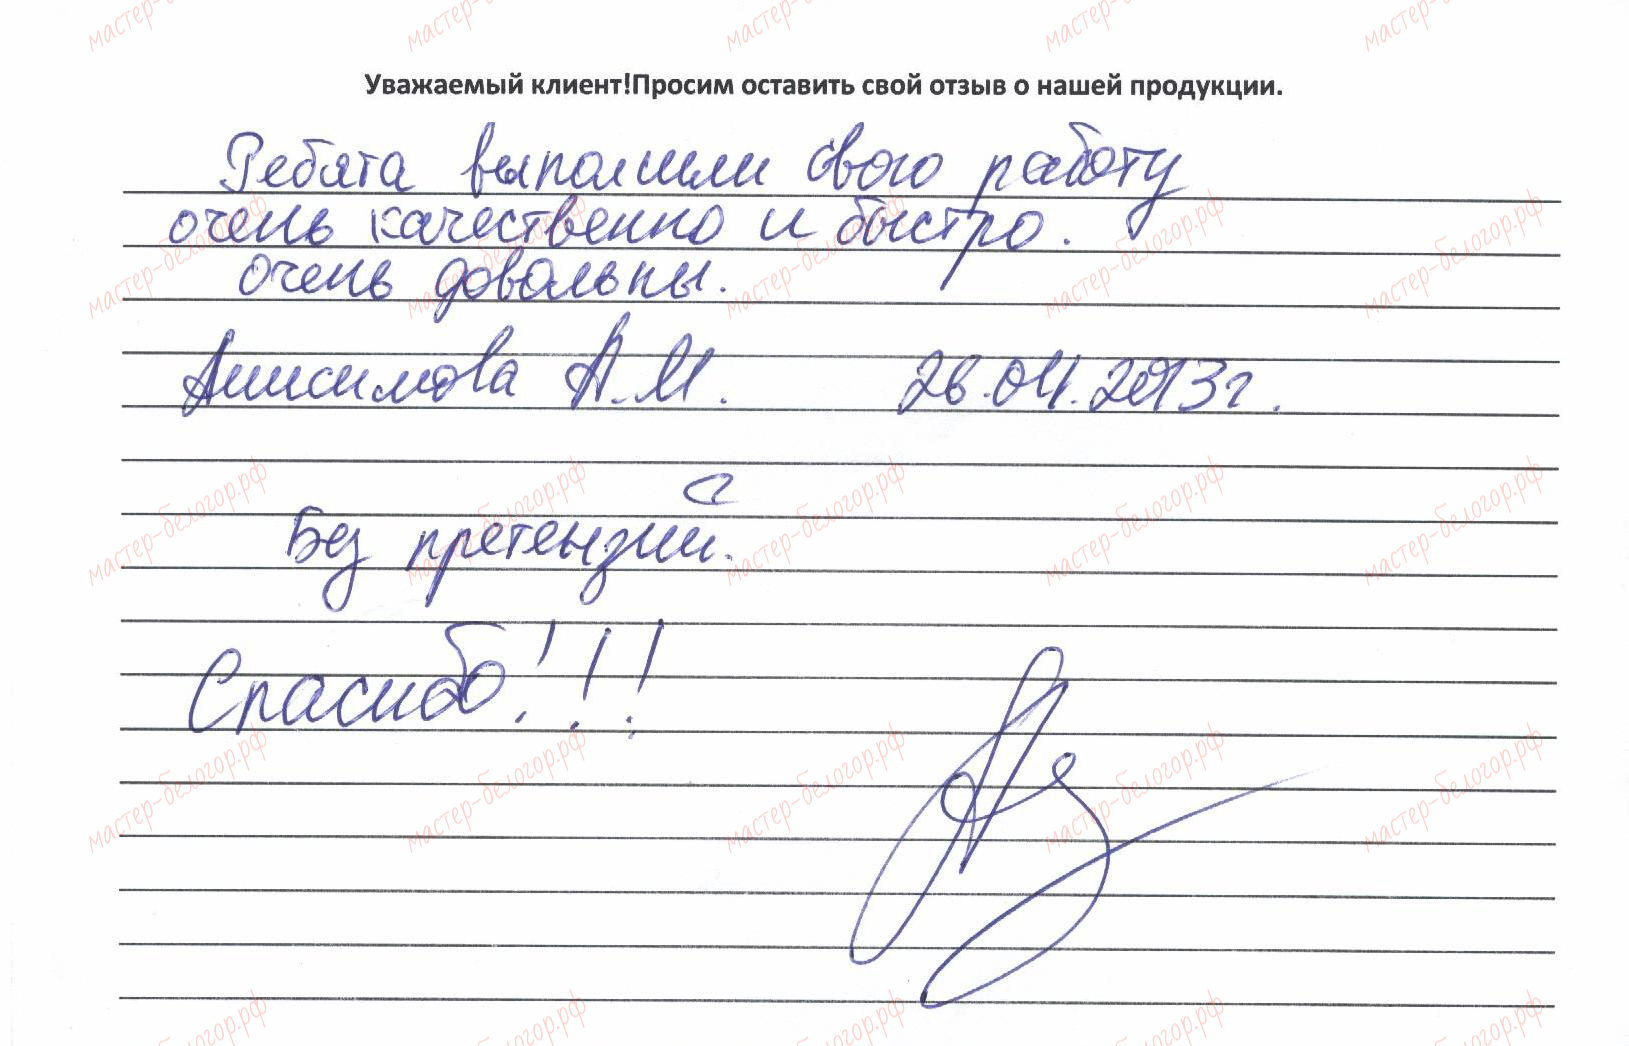 Уважаемый клиент!Просим оставить свой отзыв о нашей продукции.
Ребята выполнили свою работу
очень качественно и быстро.
очень довольны.
Анисимова А.М. 26.04.2013г.
Без претензий.
Спасибо!!!
мастер-белогор.рф